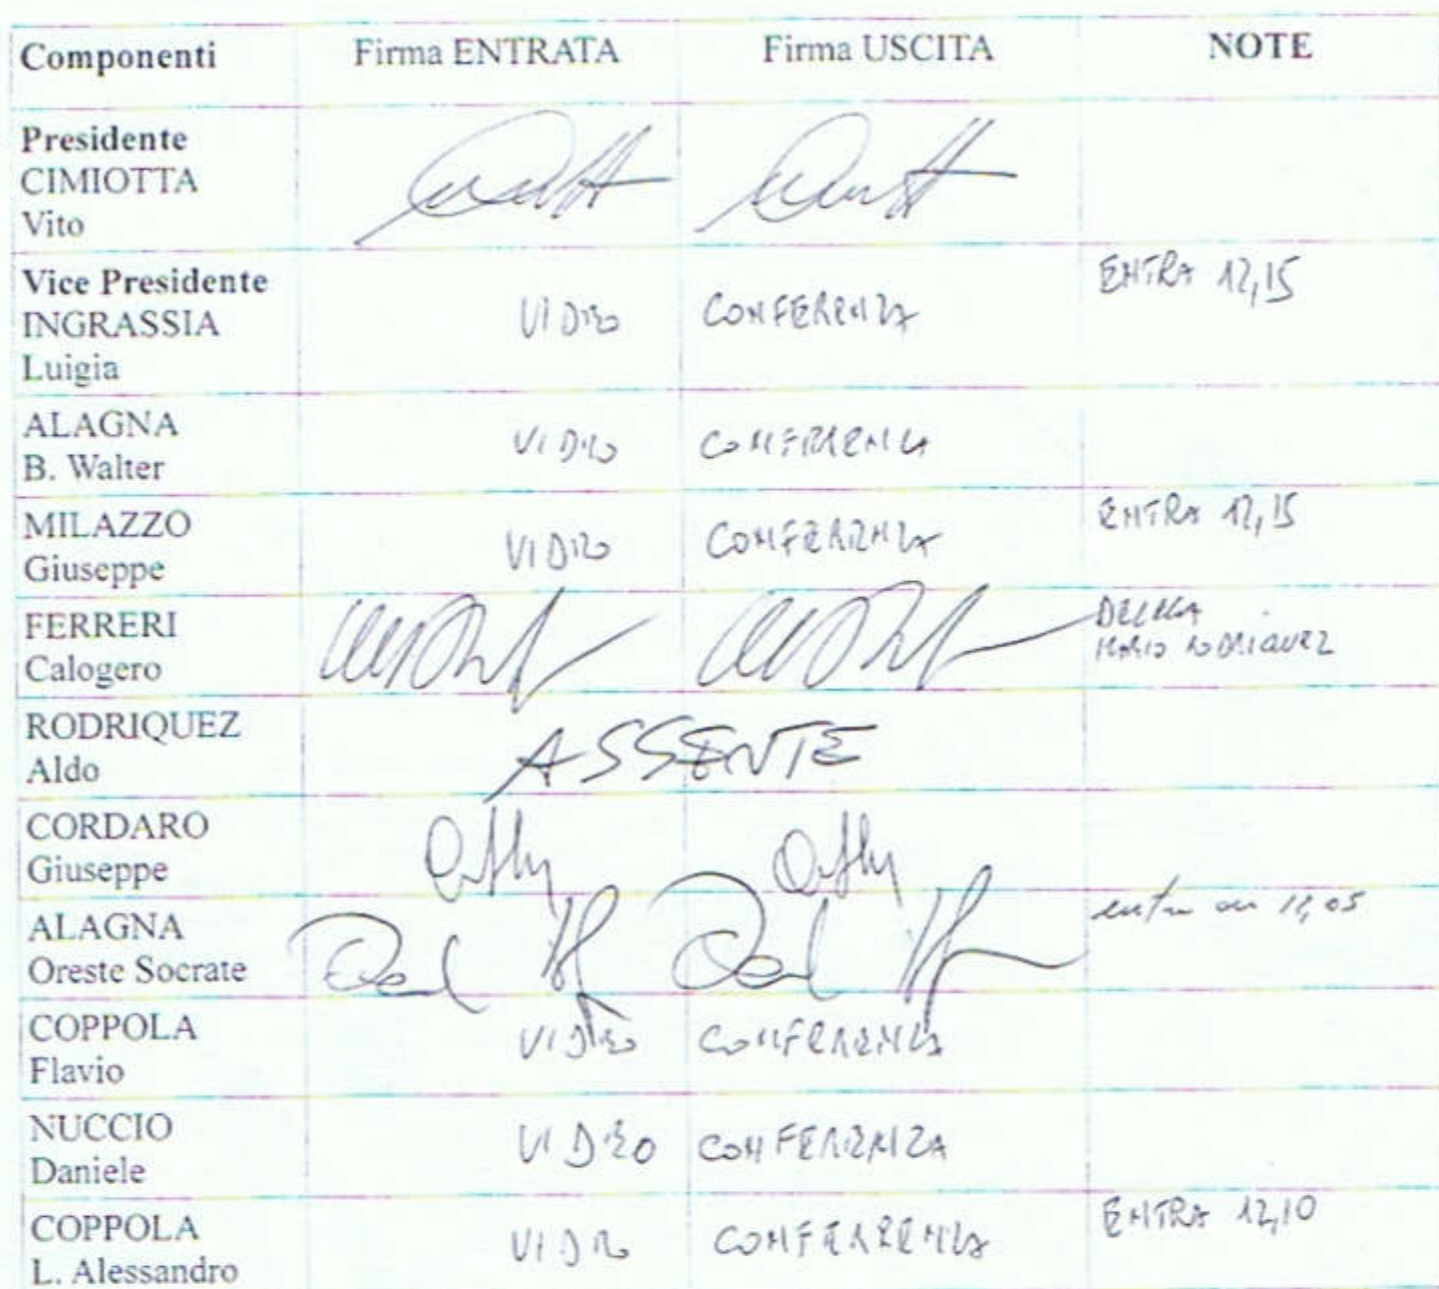 Componenti Firma ENTRATA Firma USCITA NOTE
Presidente
CIMIOTTA
Vito
Vice Presidente
INGRASSIA
Luigia
VIDEO CONFERENZA ENTRA 12,15
ALAGNA
B. Walter
VIDEO CONFERENZA
MILAZZO
Giuseppe
VIDEO CONFERENZA ENTRA 12,15
FERRERI
Calogero
DELEGA
MARIO RODRIQUEZ
RODRIQUEZ
Aldo
ASSENTE
CORDARO
Giuseppe
ALAGNA
Oreste Socrate
entra ore 12,05
COPPOLA
Flavio
VIDEO CONFERENZA
NUCCIO
Daniele
VIDEO CONFERENZA
COPPOLA
L. Alessandro
VIDEO CONFERENZA ENTRA 12,10